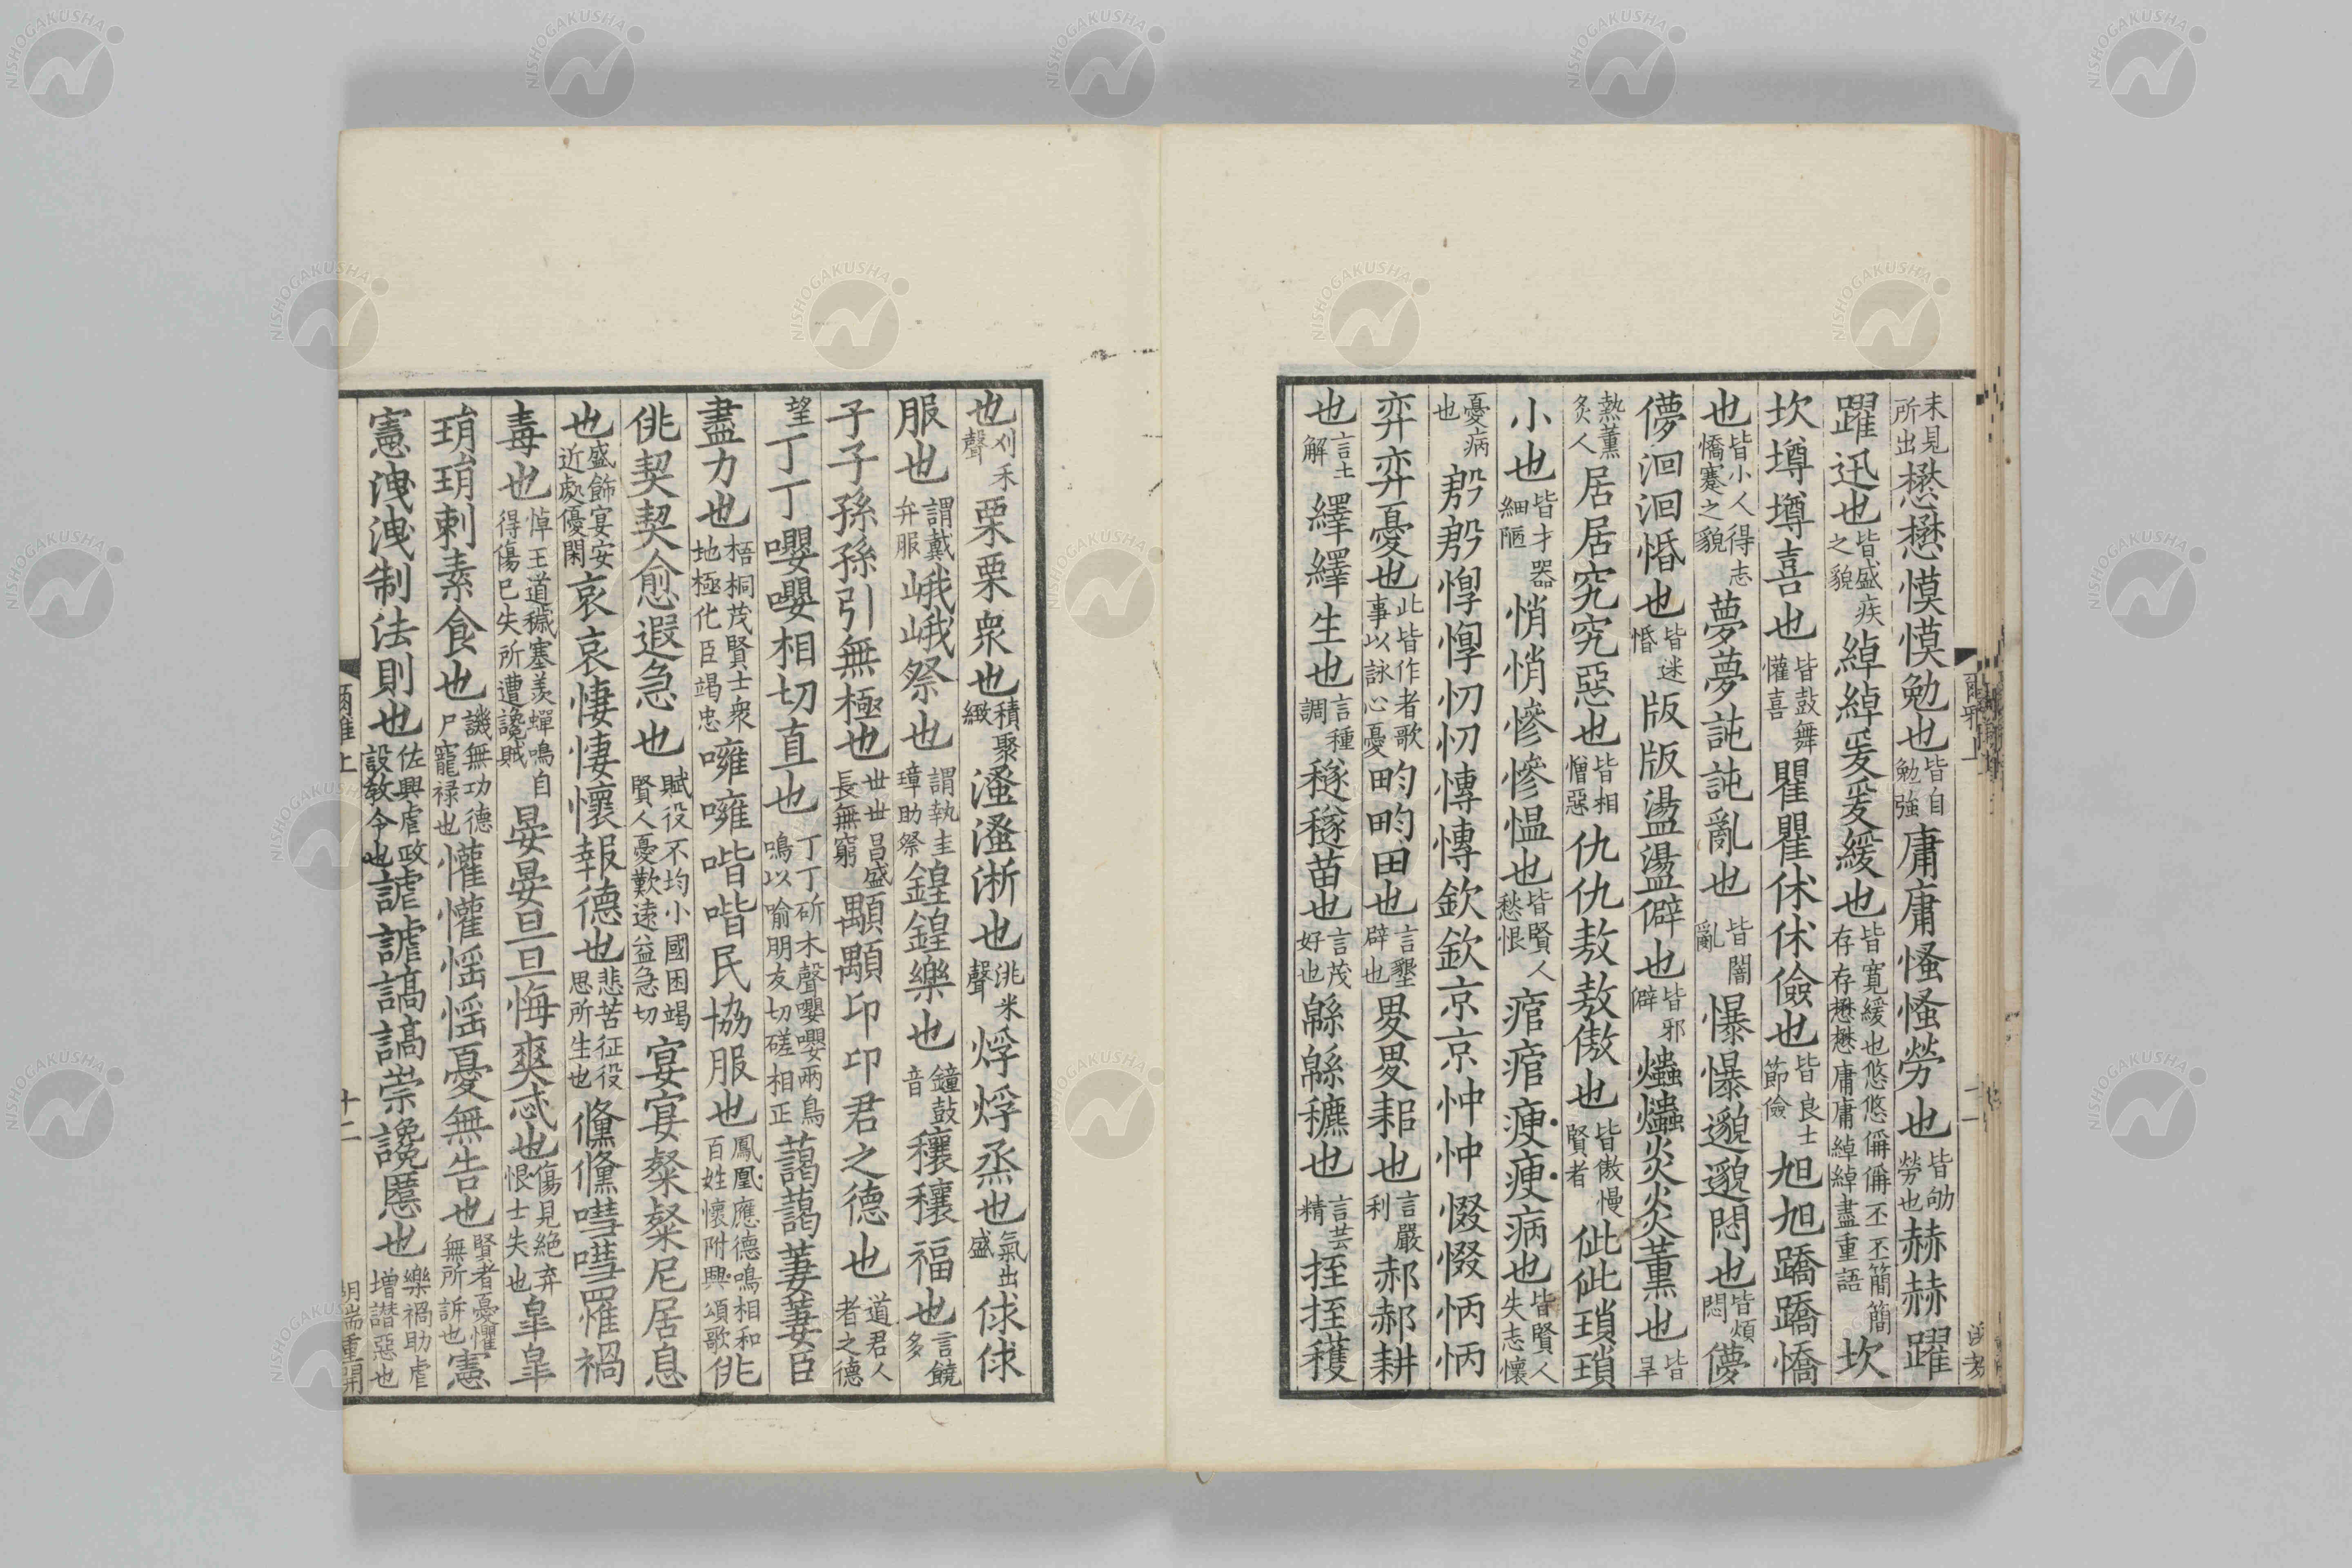 未見所出懋懋慔慔勉也皆自勉強庸庸慅慅勞也皆劬勞也赫赫躍
躍迅也皆盛疾之貌綽綽爰爰緩也皆寬緩也悠悠偁偁丕丕簡簡存存懋懋庸庸綽綽盡重語坎
坎墫墫喜也皆鼓舞懽喜瞿瞿休休儉也皆良士節儉旭旭蹻蹻憍
也皆小人得志憍蹇之貌夢夢訰訰亂也皆闇亂懪懪邈邈悶也皆煩悶儚
儚洄洄惛也皆迷惛版版盪盪僻也皆邪僻爞爞炎炎薰也皆旱
熱薰炙人居居究究惡也皆相憎惡仇仇敖敖傲也皆傲慢賢者佌佌瑣瑣
小也皆才器細陋悄悄慘慘慍也皆賢人愁恨痯痯瘐瘐病也皆賢人失志懷
憂病也殷殷惸惸忉忉慱慱欽欽京京忡忡惙惙怲怲
弈弈憂也此皆作者歌事以詠心憂畇畇田也言墾辟也畟畟耜也言嚴利郝郝耕
也言土解繹繹生也言種調穟穟苗也言茂好也緜緜穮也言芸精挃挃穫
也刈禾聲栗栗衆也積聚緻溞溞淅也洮米聲烰烰烝也氣出盛俅俅
服也謂戴弁服峨峨祭也謂執圭璋助祭鍠鍠樂也鐘鼓音穰穰福也言饒多
子子孫孫引無極也世世昌盛長無窮顒顒卬卬君之德也道君人者之德
望丁丁嚶嚶相切直也丁丁斫木聲嚶嚶兩鳥鳴以喻朋友切磋相正藹藹萋萋臣
盡力也梧桐茂賢士衆地極化臣竭忠噰噰喈喈民協服也鳳凰應德鳴相和百姓懷附興頌歌佻
佻契契愈遐急也賦役不均小國困竭賢人憂歎遠益急切宴宴粲粲尼居息
也盛飾宴安近處優閑哀哀悽悽懷報德也悲苦征役思所生也儵儵嘒嘒罹禍
毒也悼王道穢塞羨蟬鳴自得傷己失所遭讒賊晏晏旦旦悔爽忒也傷見絕弃恨士失也皐皐
琄琄刺素食也譏無功德尸寵祿也懽懽愮愮憂無告也賢者憂懼無所訴也憲
憲洩洩制法則也佐興虐政設敎令也謔謔謞謞崇讒慝也樂禍助虐增譖惡也
爾雅上
十二
明端重開
NISHOGAKUSHA